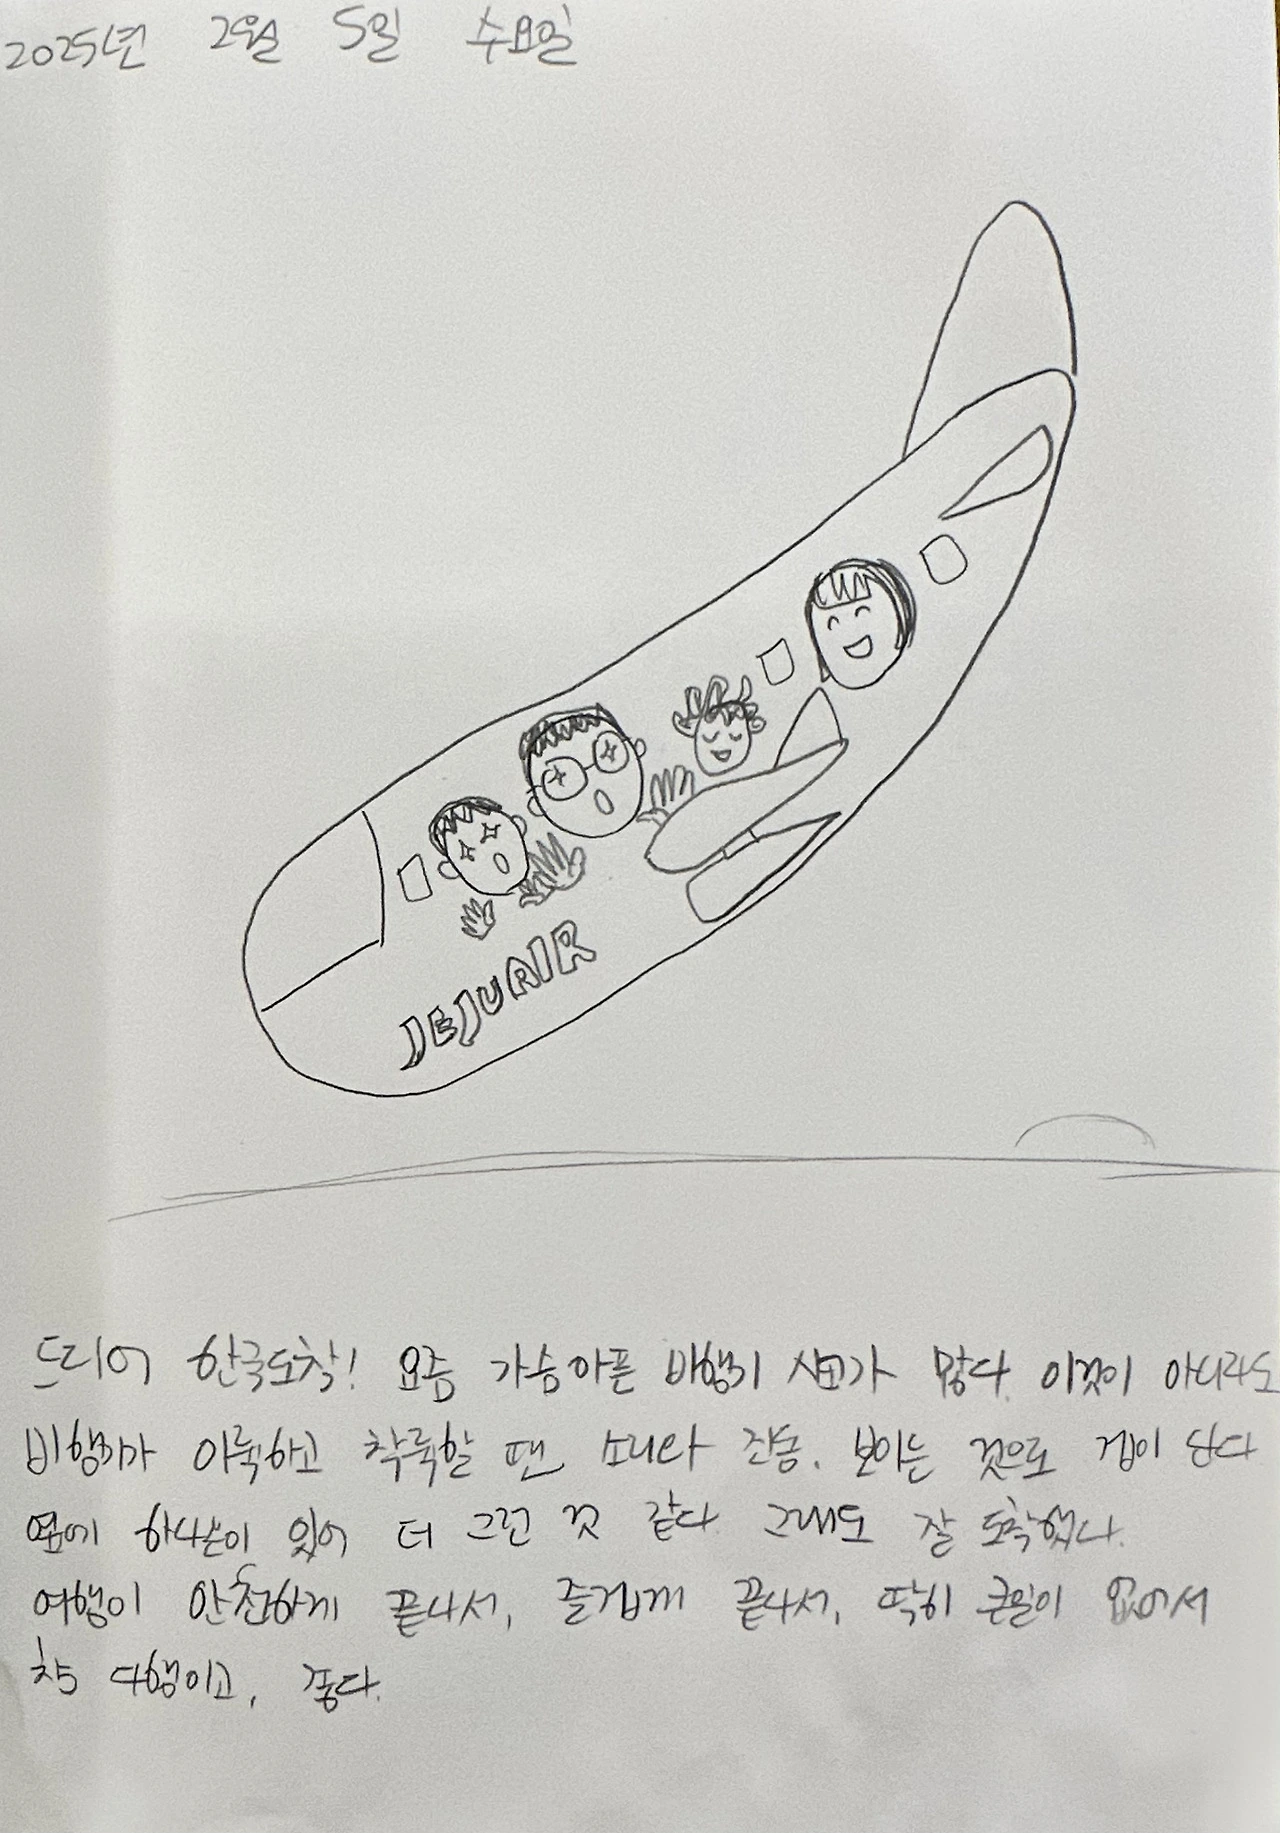 2025년 2월 5일 수요일
JEJUAIR
드디어 한국도착! 요즘 가슴아픈 비행기 사고가 많다. 이것이 아니라도
비행기가 이륙하고 착륙할 땐 소리나 진동. 보이는 것으로 겁이 난다
옆에 하나손이 있어 더 그런 것 같다. 그래도 잘 도착했다.
여행이 안전하게 끝나서, 즐겁게 끝나서, 딱히 큰일이 없어서
참 다행이고, 좋다.